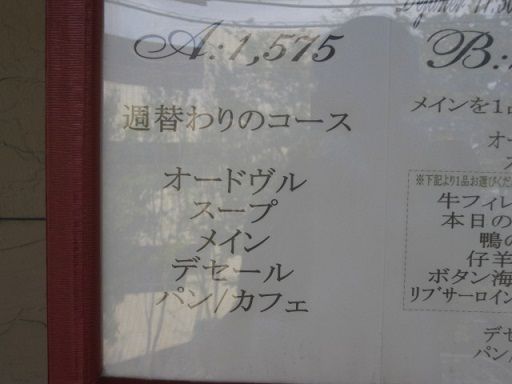 A:1,575
週替わりのコース
オードヴル
スープ
メイン
デセール
パン/カフェ
B:
メインを1品
オー
ス
※下記より1品お選びくだ
牛フィレ
本日の
鴨の
仔羊
ボタン海
リブサーロイン
デセ
パン/